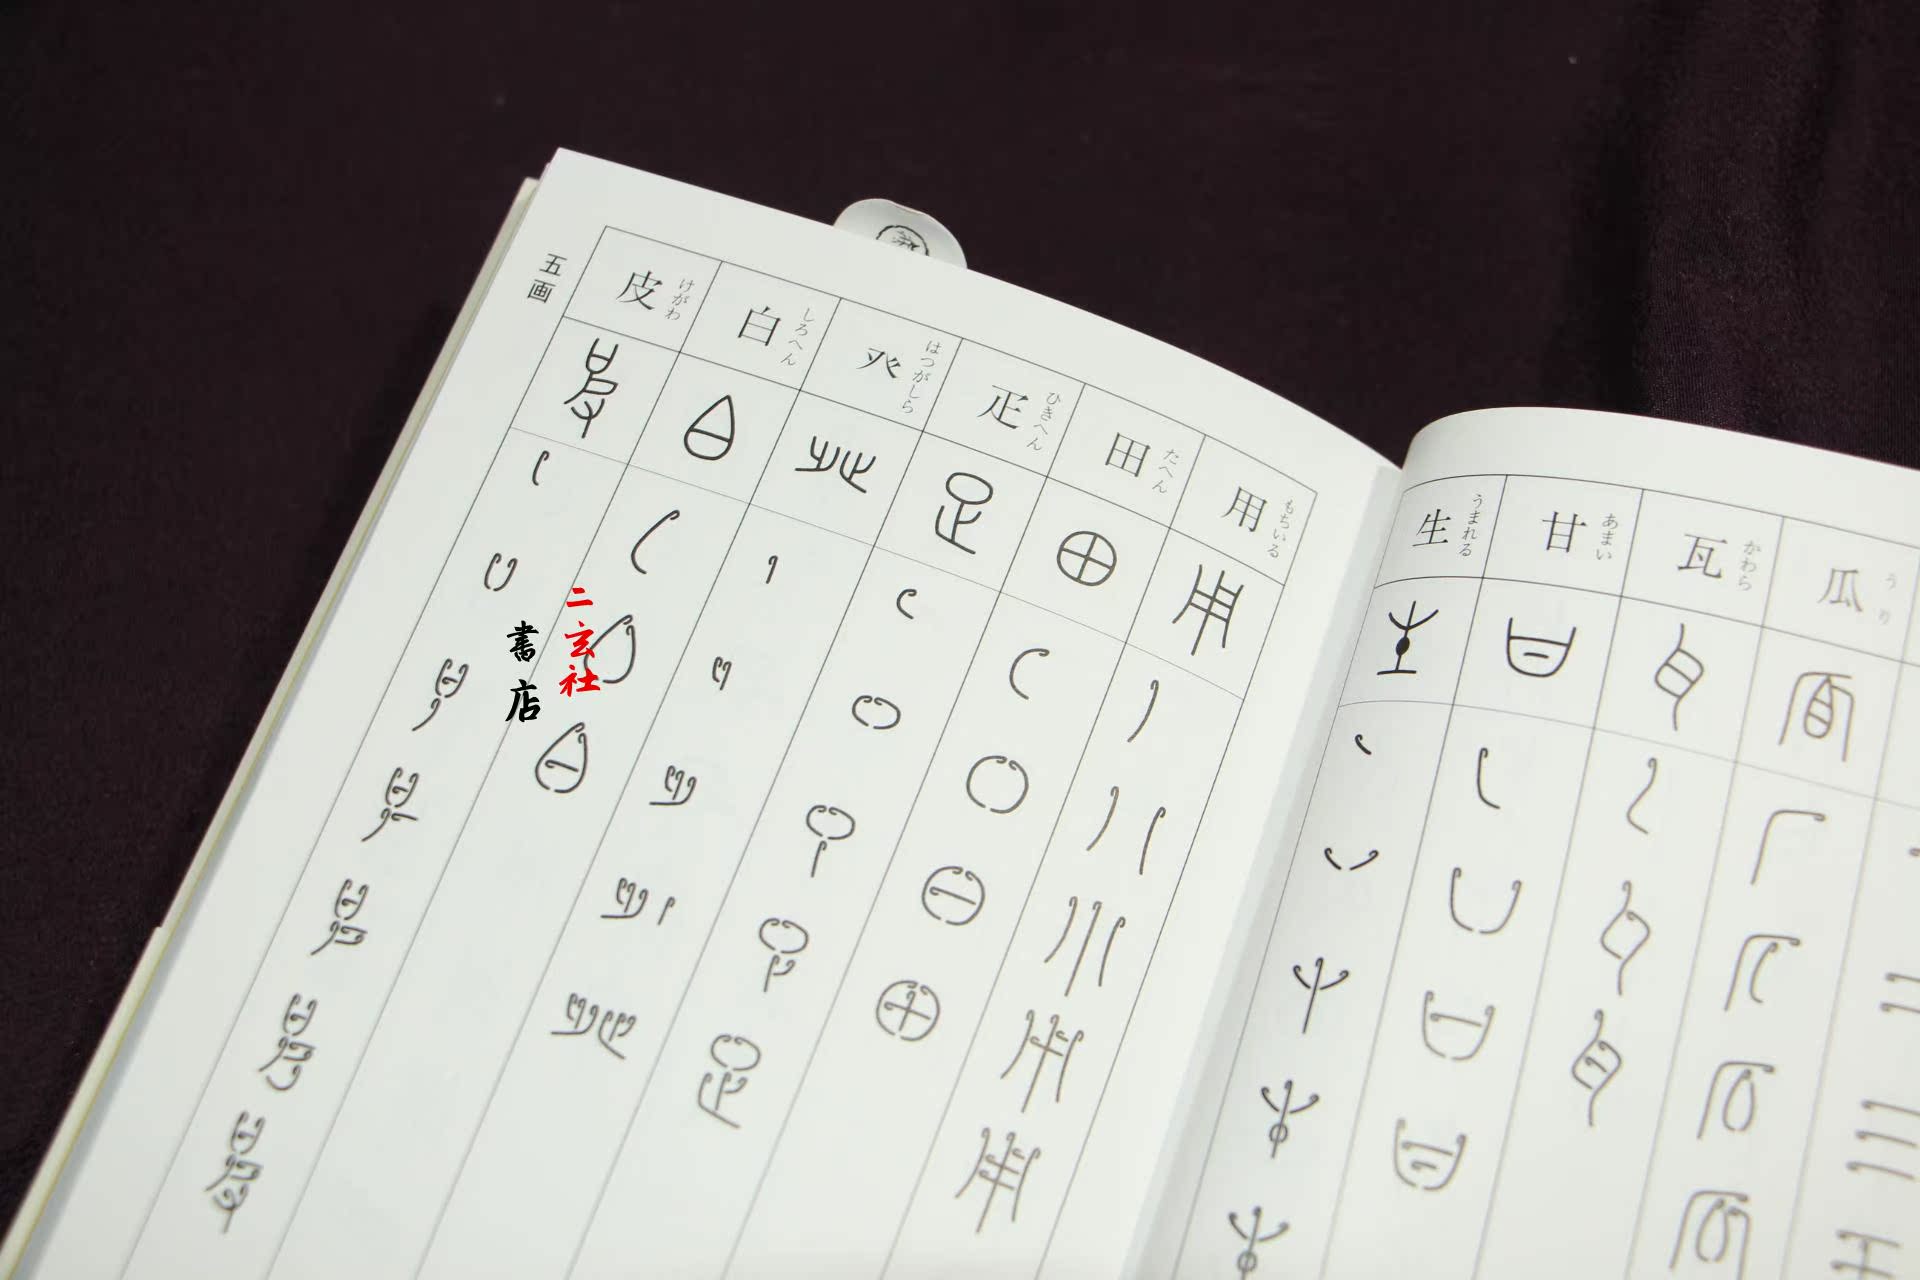 五画
瓜 うり
瓦 かわら
甘 あまい
生 うまれる
用 もちいる
田 たへん
疋 ひきへん
癶 はつがしら
白 しろへん
皮 けがわ
二玄社
書店